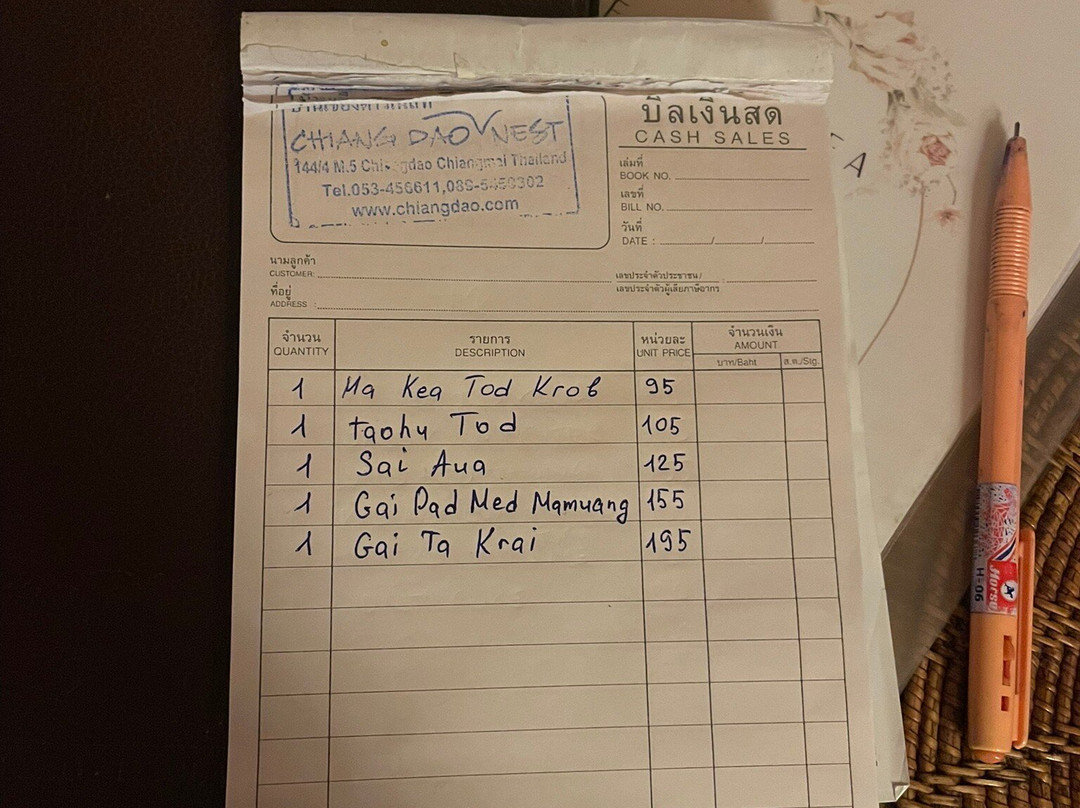 CHIANG DAO NEST
144/4 M.5 Chiangdao Chiangmai Thailand
Tel.053-456611,
www.chiangdao.com
บิลเงินสด
CASH SALES
เล่มที่
BOOK NO.
เลขที่
BILL NO.
วันที่
DATE : / /
นามลูกค้า
CUSTOMER:
เลขประจำตัวประชาชน/ :
เลขประจำตัวผู้เสียภาษีอากร
ที่อยู่
ADDRESS :
จำนวน รายการ หน่วยละ จำนวนเงิน
QUANTITY DESCRIPTION UNIT PRICE AMOUNT
บาท/Baht ส.ต./Stg.
1 Ma Kea Tod Krob 95
1 taohu Tod 105
1 Sai Aua 125
1 Gai Pad Med Mamuang 155
1 Gai Ta Krai 195
A
Horse
H-06